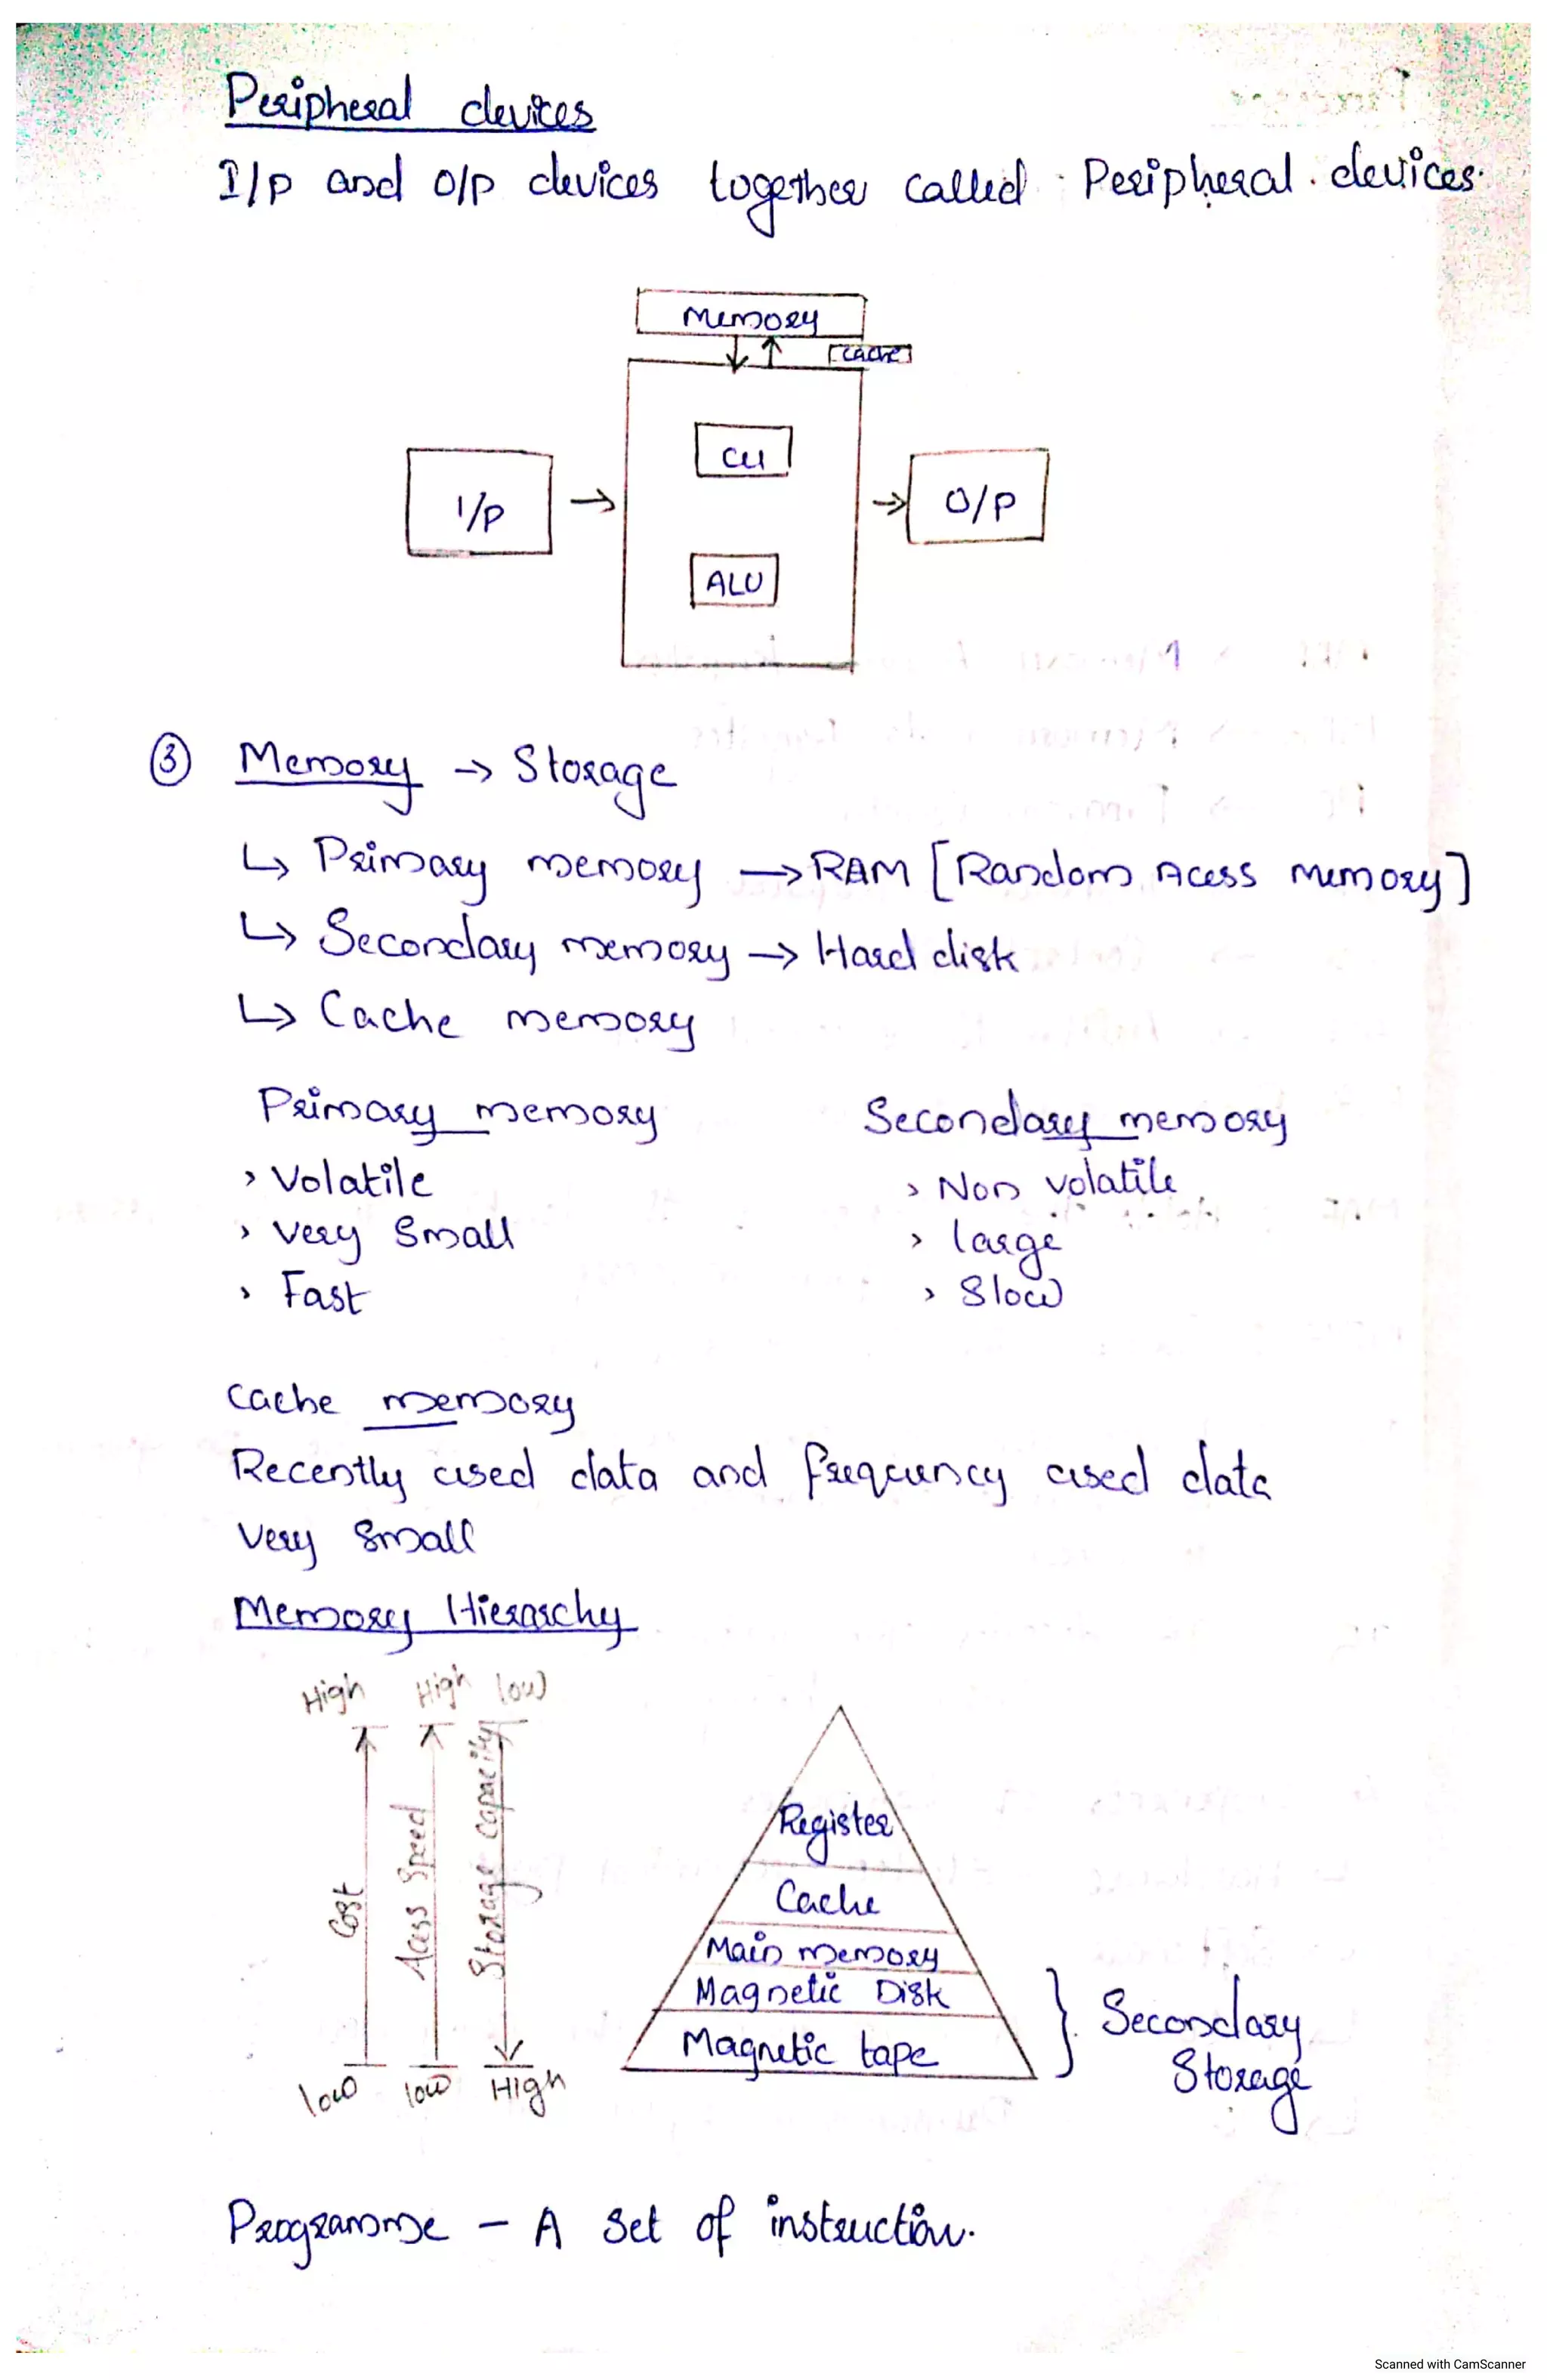 Peripheral devices
I/p and o/p devices together called Peripheral devices.
Memory
cache
CU
I/P
O/P
ALU
③ Memory → Storage
↳ Primary memory → RAM [Random Acess Memory]
↳ Secondary memory → Hard disk
↳ Cache memory
Primary memory Secondary memory
> Volatile > Non volatile
> Very Small > large
> Fast > Slow
Cache memory
Recently used data and frequency used data
Very Small
Memory Hierarchy
High High low
Cost
Acess Speed
Storage capacity
Register
Cache
Main memory
Magnetic Disk
Magnetic tape
} Secondary
Storage
low low High
Programme - A Set of instruction.
Scanned with CamScanner